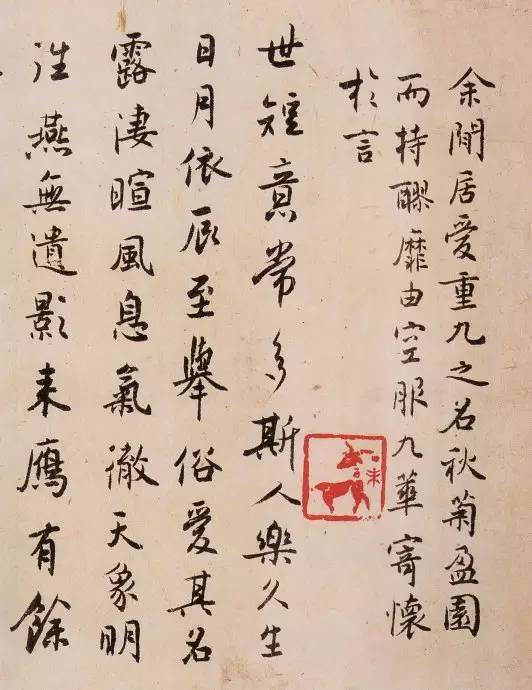 余閒居愛重九之名秋菊盈園
而持醪靡由空服九華寄懷
於言
世短意常多斯人樂久生
日月依辰至舉俗愛其名
露淒暄風息氣徹天象明
往燕無遺影来鴈有餘